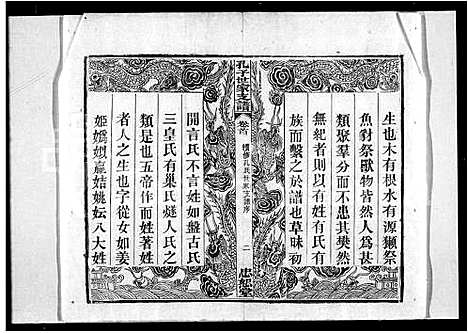 生也木有根水有源獺祭
魚豺祭獸物皆然人爲甚
類聚羣分而不患其樊然
無紀者則以有姓有氏有
族而繫之於譜也草昧初
孔子世家支譜
卷首
續修孔氏世家支譜序
二
忠恕堂
開言氏不言姓如盤古氏
三皇氏有巢氏燧人氏之
類是也五帝作而姓著姓
者人之生也字從女如姜
姬嬀姒嬴姞姚妘八大姓